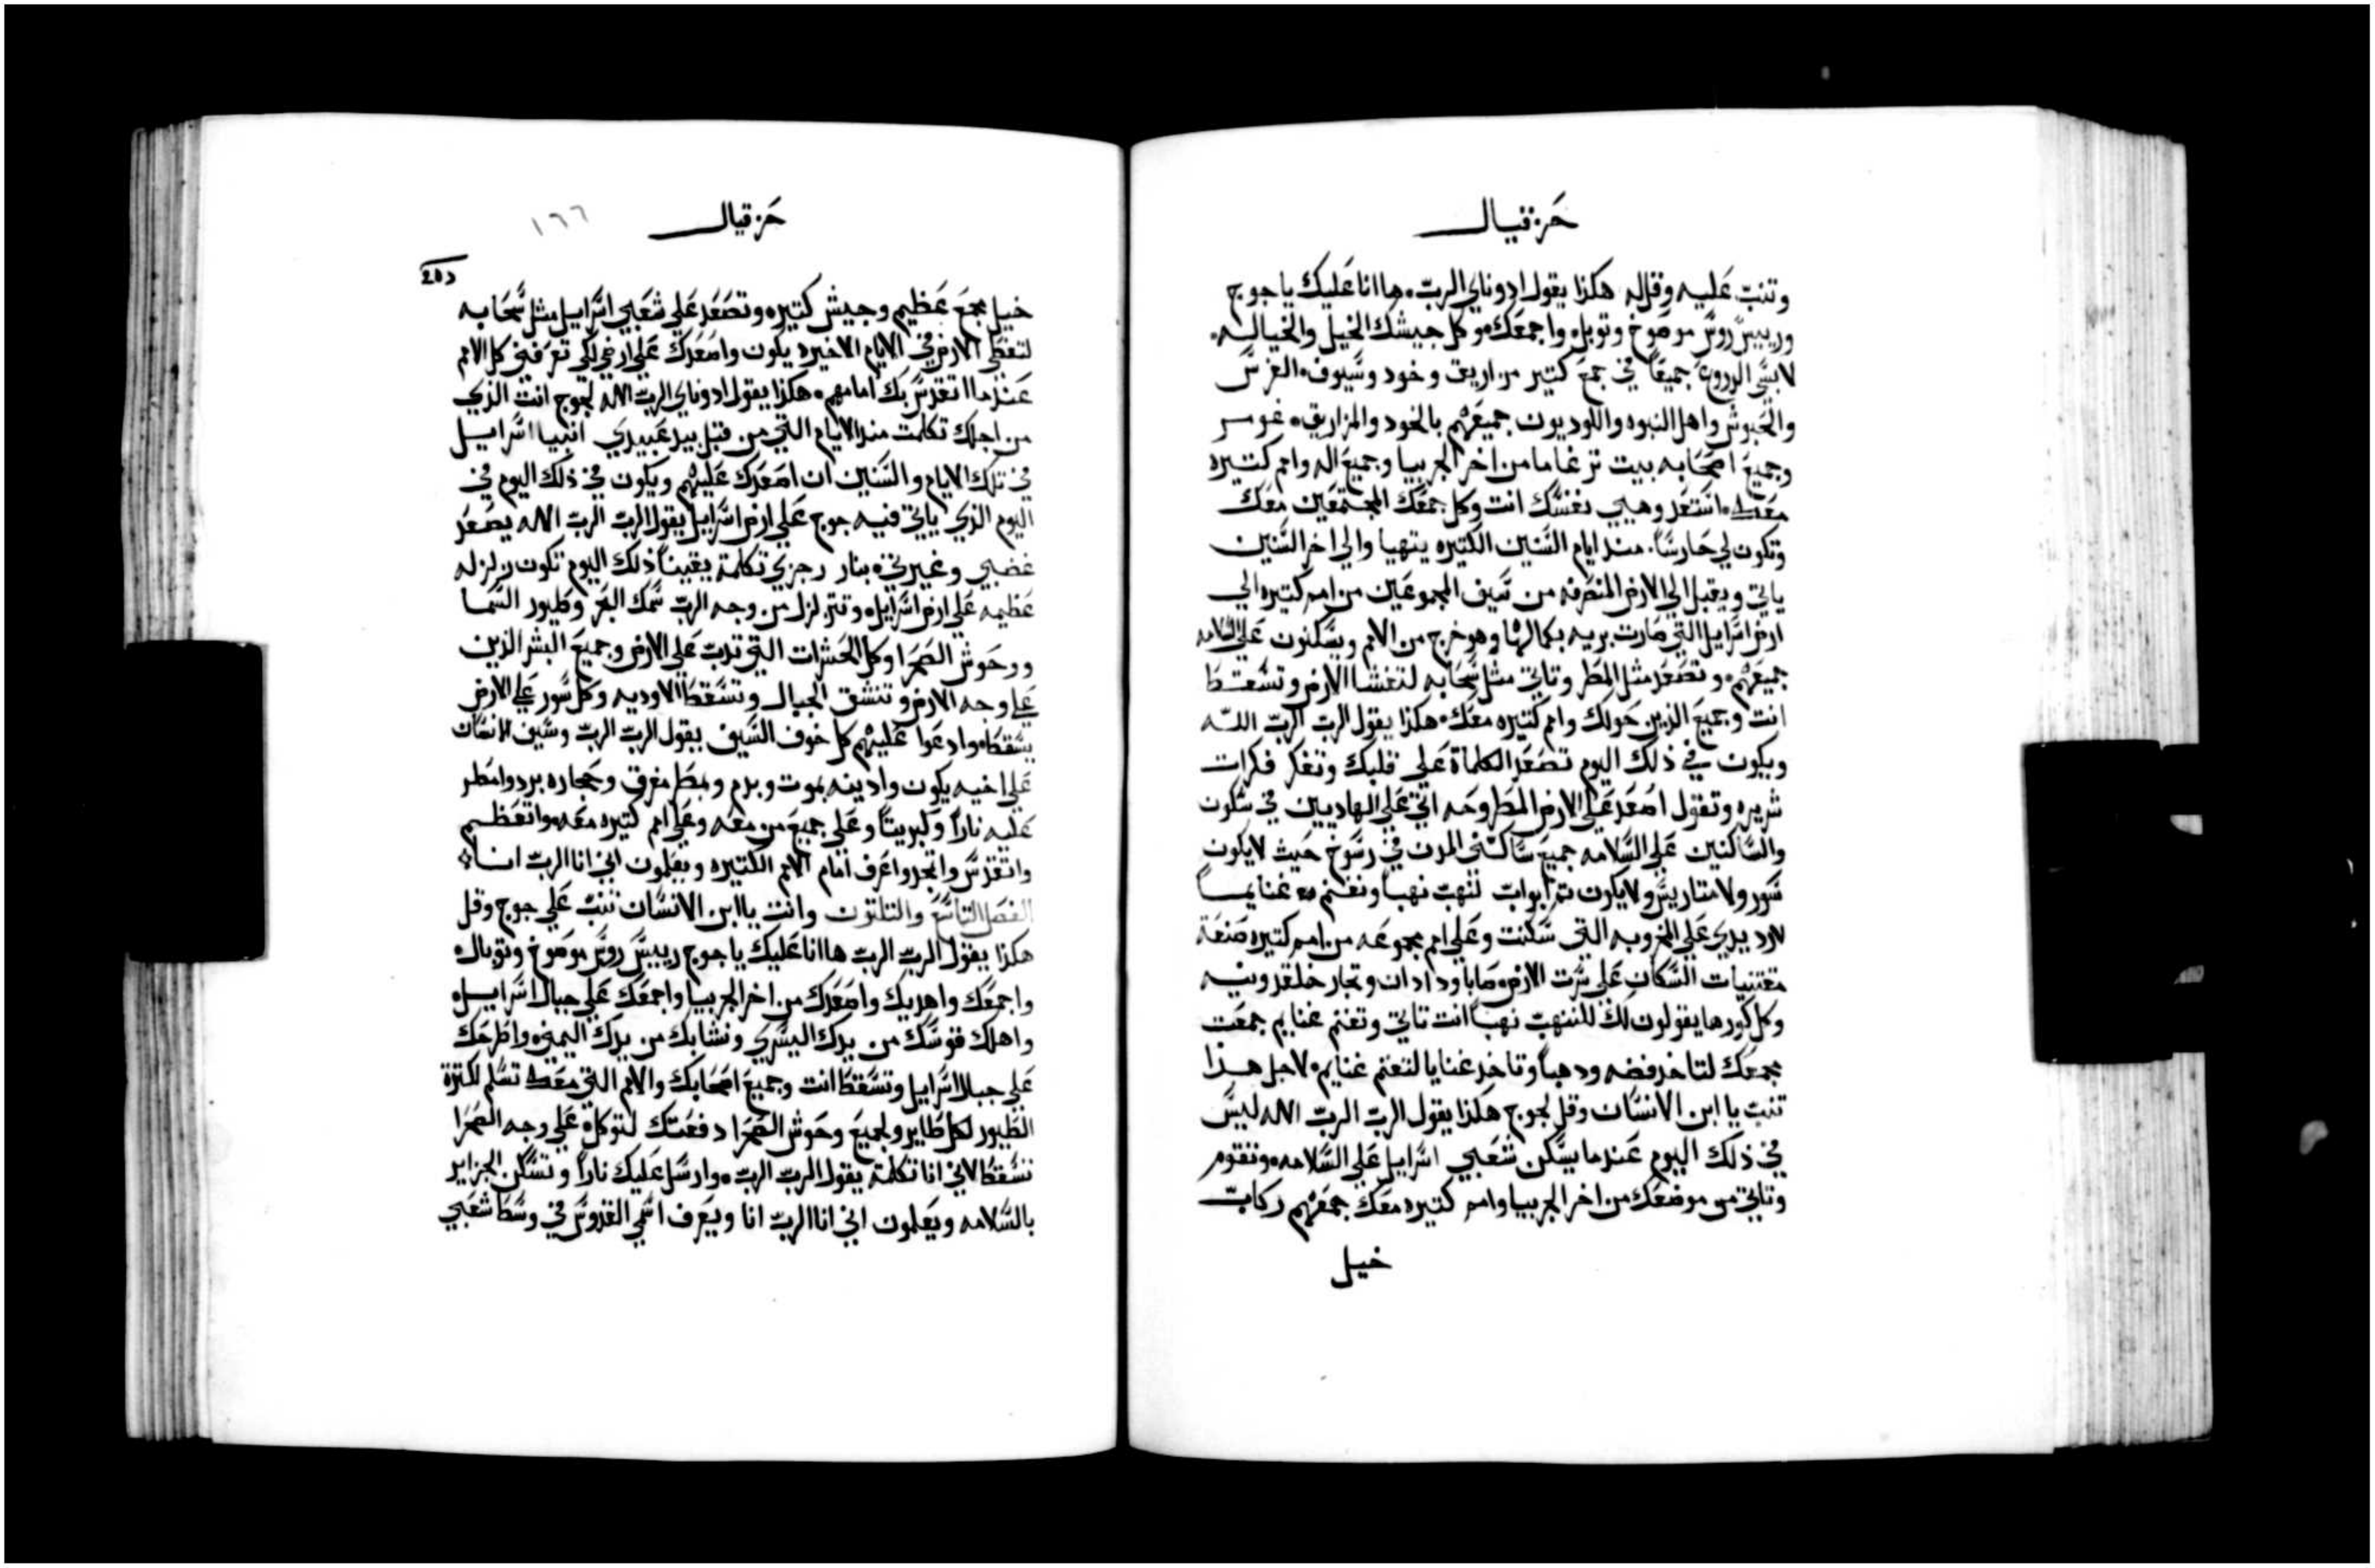 حزقيال
وتنبّ عليه وقل له هكذا يقول ادوناي الرب ها انا عليك ياجوج
ورييس روس موصوخ وتوبل واجمعك وكل جيشك الخيل والخياله
لابسي الدروع جميعاً في جمع كتير مزاريق وخود وسيوف الفرس
والحبوش واهل النبوه واللوديون جميعهم بالخود والمزاريق غومر
وجميع اصحابه بيت ترغاما من اخر الجربيا وجميع اله وامم كتيره
معك استعد وهيي نفسك انت وكل جمعك المجتمعين معك
وتكون لي حارساً منذ ايام السنين الكتيره يتهيا والي اخر السنين
ياتي ويقبل الي الارض المنصرفه من سيف المجموعين من امم كتيره الي
ارض اسرايل التي صارت بريه بكمالها وهو خرج من الامم ويسكنون علي السلامه
جميعهم وتصعد مثل المطر وتاتي مثل سحابه لتغشا الارض وتسقط
انت وجميع الذين حولك وامم كتيره معك هكذا يقول الرب الرب الله
ويكون في ذلك اليوم تصعد الكلماة علي قلبك وتفكر فكرات
شريره وتقول اصعد علي الارض المطروحه اتي علي الهاديين في سكون
والساكنين علي السلامه جميع ساكني المدن في رسوخ حيث لا يكون
سور ولا متاريس ولا يكون تم ابواب تنهب نهباً وتغنم غنايماً
لارد يدي علي الخروبه التي سكنت وعلي امم مجموعه من امم كتيره صنعة
مقتنيات السكان علي سرت الارض صابا ودادان وتجار خلقدونيه
وكل كورها يقولون لك للنهب نهباً انت تاتي وتغنم غنايم جمعت
جمعك لتاخد فضه ودهباً وتاخد غنايا لتغنم غنايم لاجل هذا
تنب يا ابن الانسان وقل لجوج هكذا يقول الرب الرب الاله ليس
في ذلك اليوم عندما يسكن شعبي اسرايل علي السلامه وتقوم
وتاتي من موضعك من اخر الجربيا وامم كتيره معك جمعهم ركاب
خيل
حزقيال
١٦٦
خيل مجمع عظيم وجيش كتيره وتصعد علي شعبي اسرايل مثل سحابه
لتغطي الارض في الايام الاخيره يكون واصعدك علي ارضي لكي تعرفني كل الامم
عندما اتقدس بك امامهم هكذا يقول ادوناي الرب الاله لجوج انت الذي
من اجلك تكلمت منذ الايام التي من قبل بيد عبيدي انبيا اسرايل
في تلك الايام والسنين ان اصعدك عليهم ويكون في ذلك اليوم في
اليوم الذي ياتي فيه جوج علي ارض اسرايل يقول الرب الرب الاله يصعد
غضبي وغيرتي بنار رجزي تكلمة يقيناً ذلك اليوم تكون زلزله
عظيمه علي ارض اسرايل وتتزلزل من وجه الرب سمك البحر وطيور السما
ووحوش الصحرا وكل الحشرات التي تدب علي الارض وجميع البشر الذين
علي وجه الارض وتنشق الجبال وتسقط الاوديه وكل سور علي الارض
يسقط وادعوا عليهم كل خوف السيف يقول الرب الرب وسيف الانسان
علي اخيه يكون وادينه بموت وبدم وبمطر مغرق وحجاره برد وامطر
عليه ناراً وكبريتاً وعلي جميع من معه وعلي امم كتيره معه واتعظم
واتقدس واتمجد واعرف امام الامم الكتيره ويعلمون اني انا الرب انا
الفصل التاسع والتلتون وانت يا ابن الانسان تنب علي جوج وقل
هكذا يقول الرب الرب ها انا عليك ياجوج رييس روس موصوخ وتوبال
واجمعك واهديك واصعدك من اخر الجربيا واجمعك علي جبال اسرايل
واهلك قوسك من يدك اليسري ونشابك من يدك اليمني واطرحك
علي جبال اسرايل وتسقط انت وجميع اصحابك والامم التي معك تسلم لكترة
الطيور لكل طاير ولجميع وحوش الصحرا دفعتك لتوكل علي وجه الصحرا
تسقط لاني انا تكلمة يقول الرب الرب وارسل عليك ناراً وتسكن الجزاير
بالسلامه ويعلمون اني انا الرب انا ويعرف اسمي القدوس في وسط شعبي